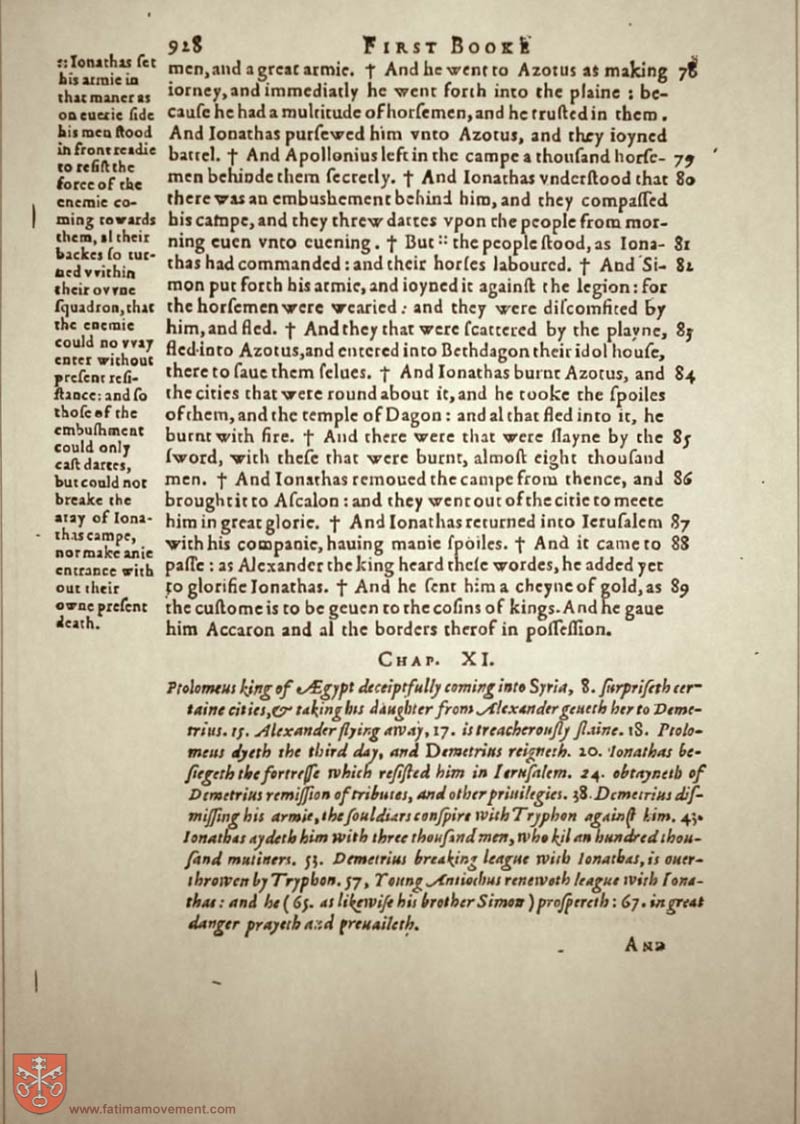 928 FIRST BOOKE
:: Ionathas ſet
his armie in
that maner as
on euerie ſide
his men ſtood
in front readie
to reſiſt the
force of the
enemie co-
ming towards
them, al their
backes ſo tur-
ned vvithin
their ovvne
ſquadron, that
the enemie
could no vvay
enter without
preſent reſi-
ſtance: and ſo
thoſe of the
embuſhment
could only
caſt dartes,
but could not
breake the
aray of Iona-
thas campe,
nor make anie
entrance with
out their
owne preſent
death.
men, and a great armie. † And he went to Azotus as making 78
iorney, and immediatly he went forth into the plaine : be-
cauſe he had a multitude of horſemen, and he truſted in them.
And Ionathas purſewed him vnto Azotus, and they ioyned
battel. † And Apollonius left in the campe a thouſand horſe- 79
men behinde them ſecretly. † And Ionathas vnderſtood that 80
there was an embushement behind him, and they compaſſed
his campe, and they threw dartes vpon the people from mor-
ning euen vnto euening. † But :: the people ſtood, as Iona- 81
thas had commanded : and their horſes laboured. † And Si- 82
mon put forth his armie, and ioyned it againſt the legion : for
the horſemen were wearied : and they were diſcomfited by
him, and fled. † And they that were ſcattered by the playne, 83
fled into Azotus, and entered into Bethdagon their idol houſe,
there to ſaue them ſelues. † And Ionathas burnt Azotus, and 84
the cities that were round about it, and he tooke the ſpoiles
of them, and the temple of Dagon : and al that fled into it, he
burnt with fire. † And there were that were ſlayne by the 85
ſword, with theſe that were burnt, almoſt eight thouſand
men. † And Ionathas remoued the campe from thence, and 86
brought it to Aſcalon : and they went out of the citie to meete
him in great glorie. † And Ionathas returned into Ieruſalem 87
with his companie, hauing manie ſpoiles. † And it came to 88
paſſe : as Alexander the king heard theſe wordes, he added yet
to glorifie Ionathas. † And he ſent him a cheyne of gold, as 89
the cuſtome is to be geuen to the coſins of kings. And he gaue
him Accaron and al the borders therof in poſſeſſion.
CHAP. XI.
Ptolomeus king of Ægypt deceiptfully coming into Syria, 8. ſurpriſeth cer-
taine cities, & taking his daughter from Alexander geueth her to Deme-
trius. 15. Alexander flying away, 17. is treacherouſly ſlaine. 18. Ptolo-
meus dyeth the third day, and Demetrius reigneth. 20. Ionathas be-
ſiegeth the fortreſſe which reſiſted him in Ieruſalem. 24. obtayneth of
Demetrius remiſſion of tributes, and other priuilegies. 38. Demetrius diſ-
miſſing his armie, the ſouldiars conſpire with Tryphon againſt him. 43.
Ionathas aydeth him with three thouſand men, who kil an hundred thou-
ſand mutiners. 53. Demetrius breaking league with Ionathas, is ouer-
throwen by Tryphon. 57, Young Antiochus reneweth league with Iona-
thas : and he ( 65. as likewiſe his brother Simon ) proſpereth : 67. in great
danger prayeth and preuaileth.
AND
www.fatimamovement.com